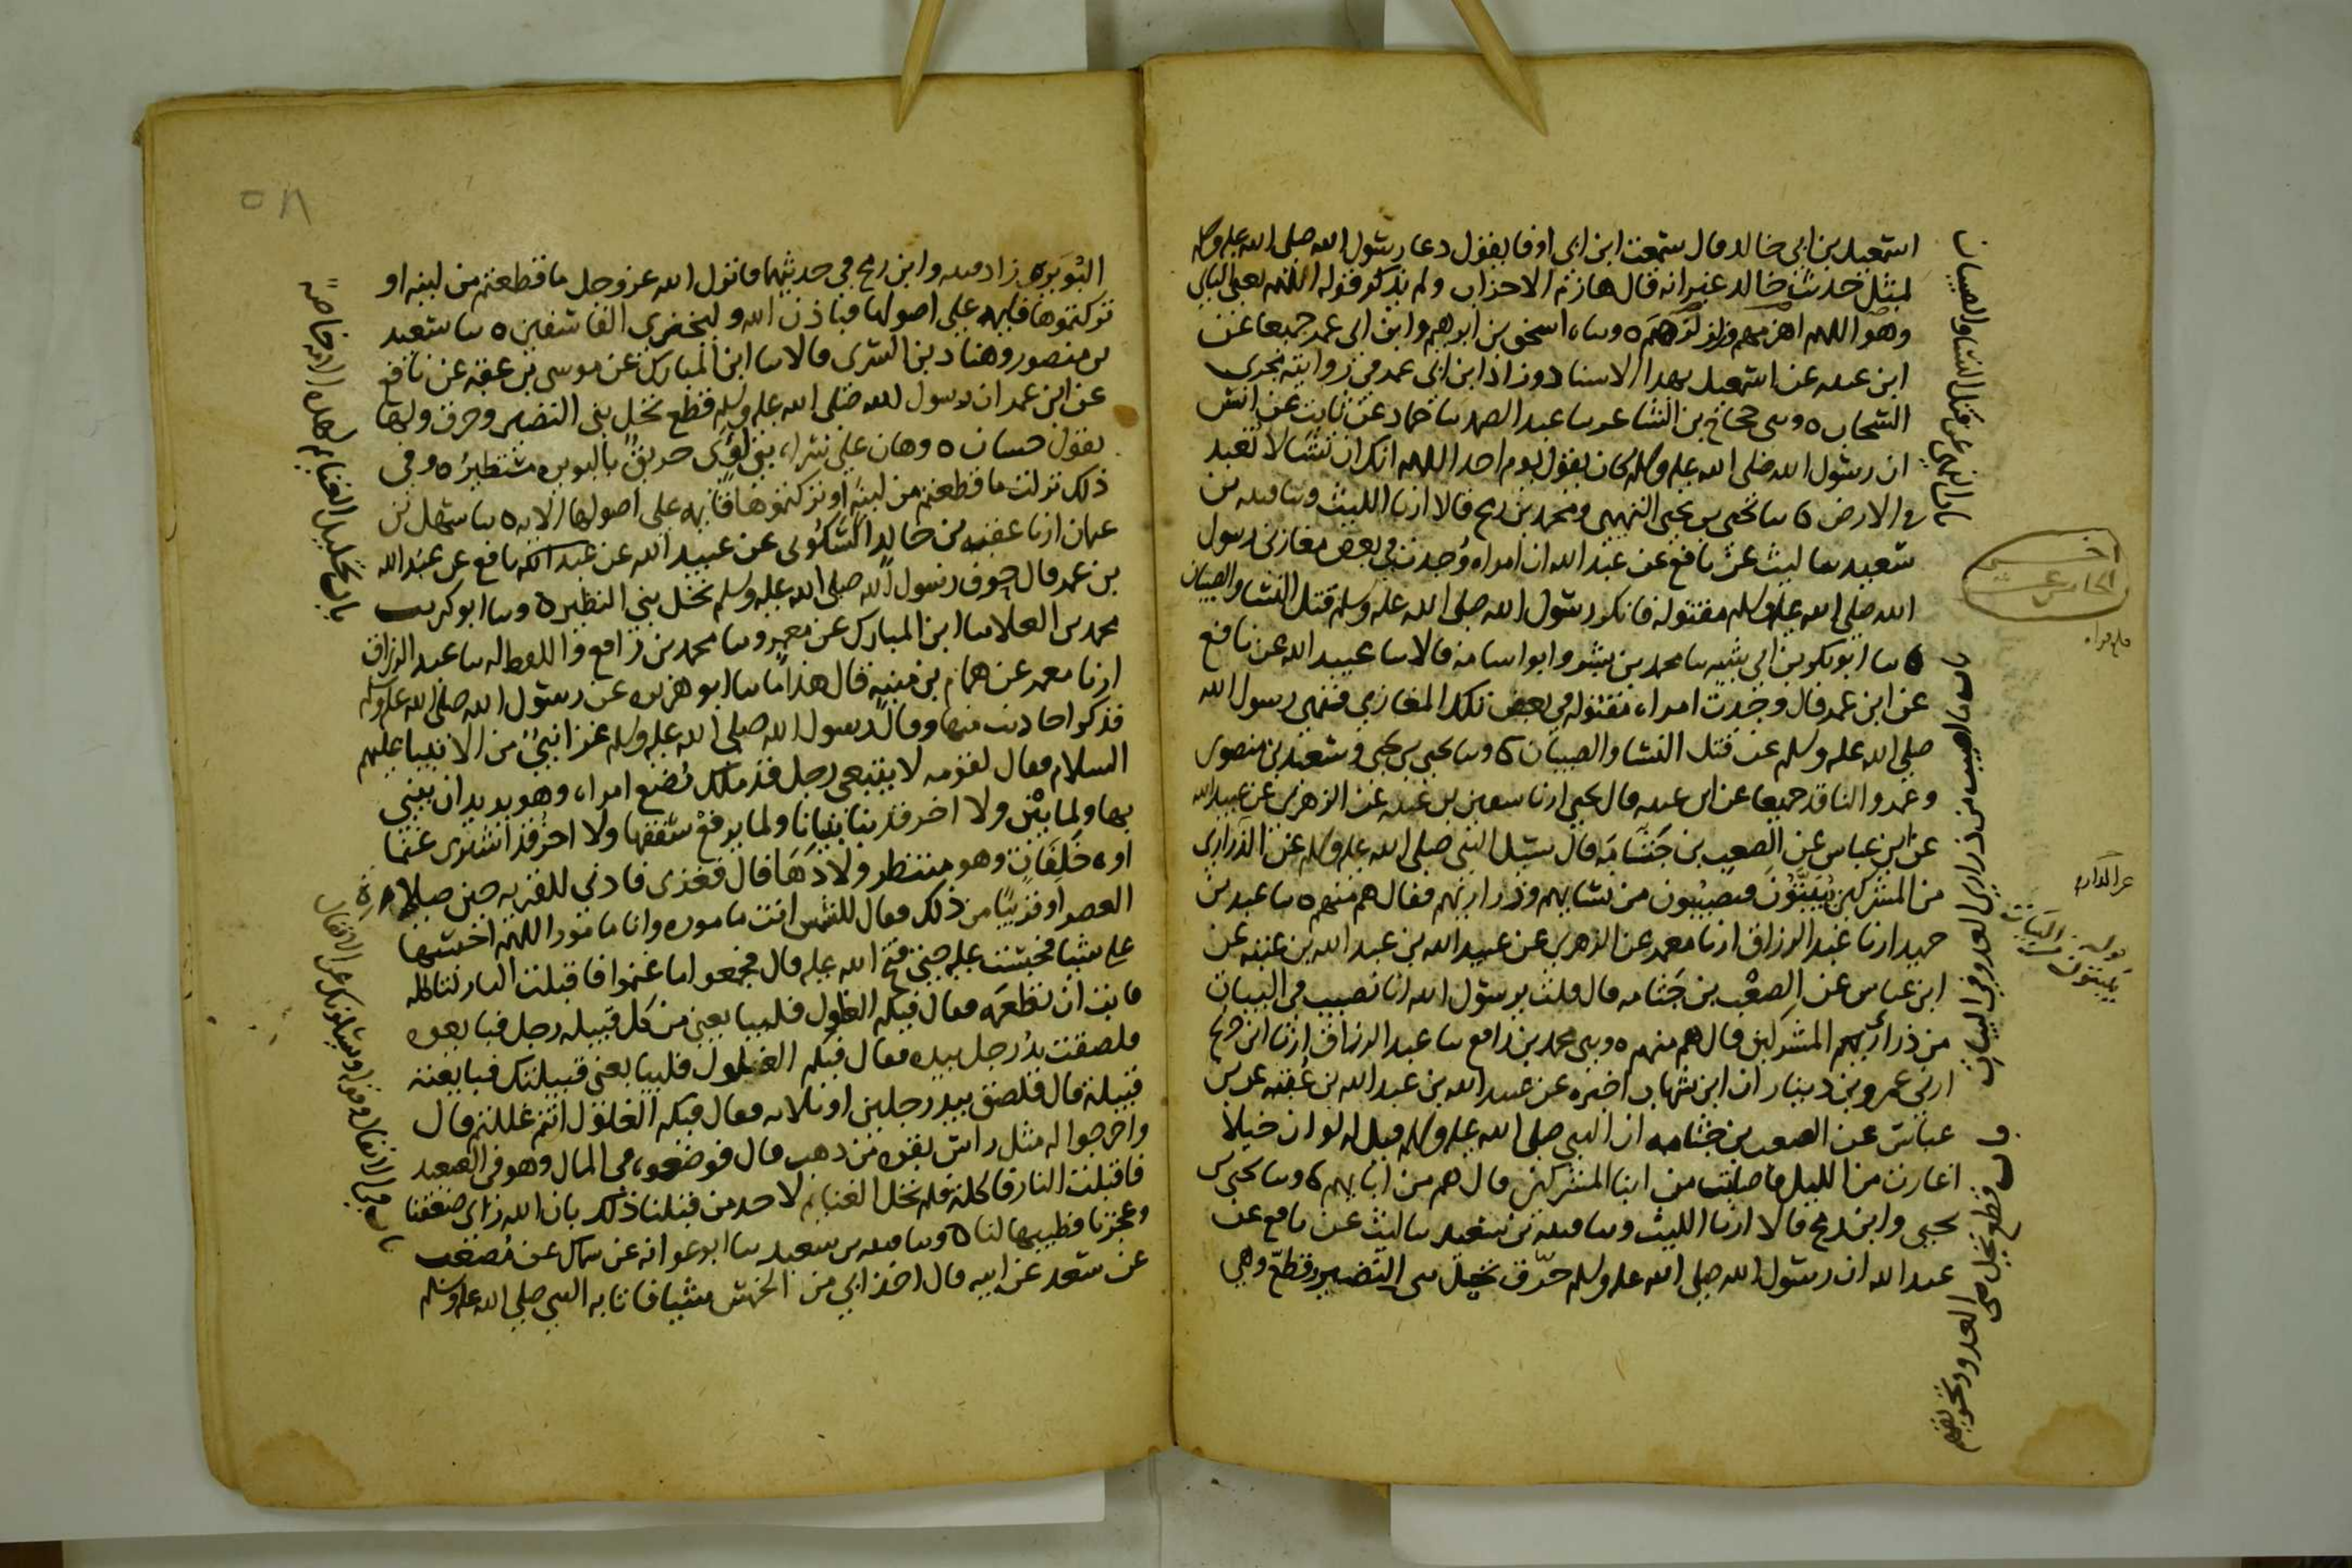 اسمعيل بن ابي خالد قال سمعت ابن ابي اوفا يقول دعا رسول الله صلى الله عليه وسلم
بمثل حديث خالد غير انه قال هازم الاحزاب ولم يذكر قوله اللهم يعني الثاني
وهو اللهم اهزمهم وزلزلهم ه وسا اسحق بن ابرهيم وابن ابي عمر جميعا عن
ابن عيينه عن اسمعيل بهذا الاسناد وزاد ابن ابي عمر في روايته مجرى
السحاب ه وسى حجاج بن الشاعر سا عبد الصمد سا حماد عن ثابت عن انس
ان رسول الله صلى الله عليه وسلم كان يقول يوم احد اللهم انك ان تشا لا تعبد
في الارض ه سا يحيى بن يحيى التميمي ومحمد بن رمح قالا ارنا الليث وسا قتيبه بن
سعيد سا ليث عن نافع عن عبد الله ان امراه وجدت في بعض مغازي رسول
الله صلى الله عليه وسلم مقتوله فانكر رسول الله صلى الله عليه وسلم قتل النسا والصبيان
ه سا ابو بكر بن ابي شيبه سا محمد بن بشر وابو اسامه قالا سا عبيد الله عن نافع
عن ابن عمر قال وجدت امراه مقتوله في بعض تلك المغازي فنهى رسول الله
صلى الله عليه وسلم عن قتل النسا والصبيان ه وسا يحيى بن يحيى وسعيد بن منصور
وعمرو الناقد جميعا عن ابن عيينه قال يحيى ارنا سفين بن عيينه عن الزهري عن عبيد الله
عن ابن عباس عن الصعب بن جثامه قال سيل النبي صلى الله عليه وسلم عن الذراري
من المشركين يبيتون فيصيبون من نسايهم وذراريهم فقال هم منهم ه سا عبد بن
حميد ارنا عبد الرزاق ارنا معمر عن الزهري عن عبيد الله بن عبد الله بن عتبه عن
ابن عباس عن الصعب بن جثامه قال قلت يرسول الله انا نصيب في البيات
من ذراري المشركين قال هم منهم ه وسى محمد بن رافع سا عبد الرزاق ارنا ابن جريج
ارنى عمرو بن دينار ان ابن شهاب اخبره عن عبيد الله بن عبد الله بن عتبه عن بن
عباس عن الصعب بن جثامه ان النبي صلى الله عليه وسلم قيل له لو ان خيلا
اغارت من الليل فاصابت من ابنا المشركين قال هم من ابايهم ه وسا يحيى بن
يحيى وابن رمح قالا ارنا الليث وسا قتيبه بن سعيد سا ليث عن نافع عن
عبد الله ان رسول الله صلى الله عليه وسلم حرّق نخيل بني النضير وقطّع وهي
باب النهي عن قتل النسا والصبيان
باب ما اصيب من ذراري العدو في البيات
باب قطع نخيل العدو وتحريقهم
عن الدار
يبيتون
البويره زاد قتيبه وابن رمح في حديثهما فانزل الله عز وجل ما قطعتم من لينه او
تركتموها قايمه على اصولها فباذن الله وليخزي الفاسقين ه سا سعيد
بن منصور وهناد بن السري قالا سا ابن المبارك عن موسى بن عقبه عن نافع
عن ابن عمر ان رسول الله صلى الله عليه وسلم قطع نخل بني النضير وحرق ولها
يقول حسان ه وهان على سراه بني لؤي حريق بالبويره مستطير ه وفي
ذلك نزلت ما قطعتم من لينه او تركتموها قايمه على اصولها الايه ه سا سهل بن
عثمان ارنا عقبه بن خالد السكوني عن عبيد الله عن نافع عن عبد الله
بن عمر قال حرق رسول الله صلى الله عليه وسلم نخل بني النظير ه وسا ابو كريب
محمد بن العلا سا ابن المبارك عن معمر وسا محمد بن رافع واللفظ له سا عبد الرزاق
ارنا معمر عن همام بن منبه قال هذا ما سا ابو هريره عن رسول الله صلى الله عليه وسلم
فذكر احاديث منها وقال رسول الله صلى الله عليه وسلم غزا نبيّ من الانبيا عليهم
السلام فقال لقومه لا يتبعني رجل قد ملك بضع امراه وهو يريد ان يبني
بها ولما يبن ولا اخر قد بنا بنيانا ولما يرفع سقفها ولا اخر قد اشترى غنما
او خلفات وهو منتظر ولادها قال فغزى فادنى للقريه حين صلاه
العصر او قريبا من ذلك فقال للشمس انت ماموره وانا مامور اللهم احبسها
علي شيا فحبست عليه حتى فتح الله عليه قال فجمعوا ما غنموا فاقبلت النار لتاكله
فابت ان تطعمه فقال فيكم الغلول فليبايعني من كل قبيله رجل فبايعوه
فلصقت يد رجل بيده فقال فيكم الغلول فليبايعني قبيلتك فبايعته
قبيلته قال فلصق بيد رجلين او ثلاثه فقال فيكم الغلول انتم غللتم قال
واخرجوا له مثل راس بقره من ذهب قال فوضعوه في المال وهو في الصعيد
فاقبلت النار فاكلته فلم تحل الغنايم لاحد من قبلنا ذلك بان الله راى ضعفنا
وعجزنا فطيبها لنا ه وسا قتيبه بن سعيد سا ابو عوانه عن سماك عن مصعب
عن سعد عن ابيه قال اخذ ابي من الخمس شيا فاتا به النبي صلى الله عليه وسلم
باب تحليل الغنايم لهذه الامه خاصه
باب في الانفال وقوله يسئلونك عن الانفال
٥٨